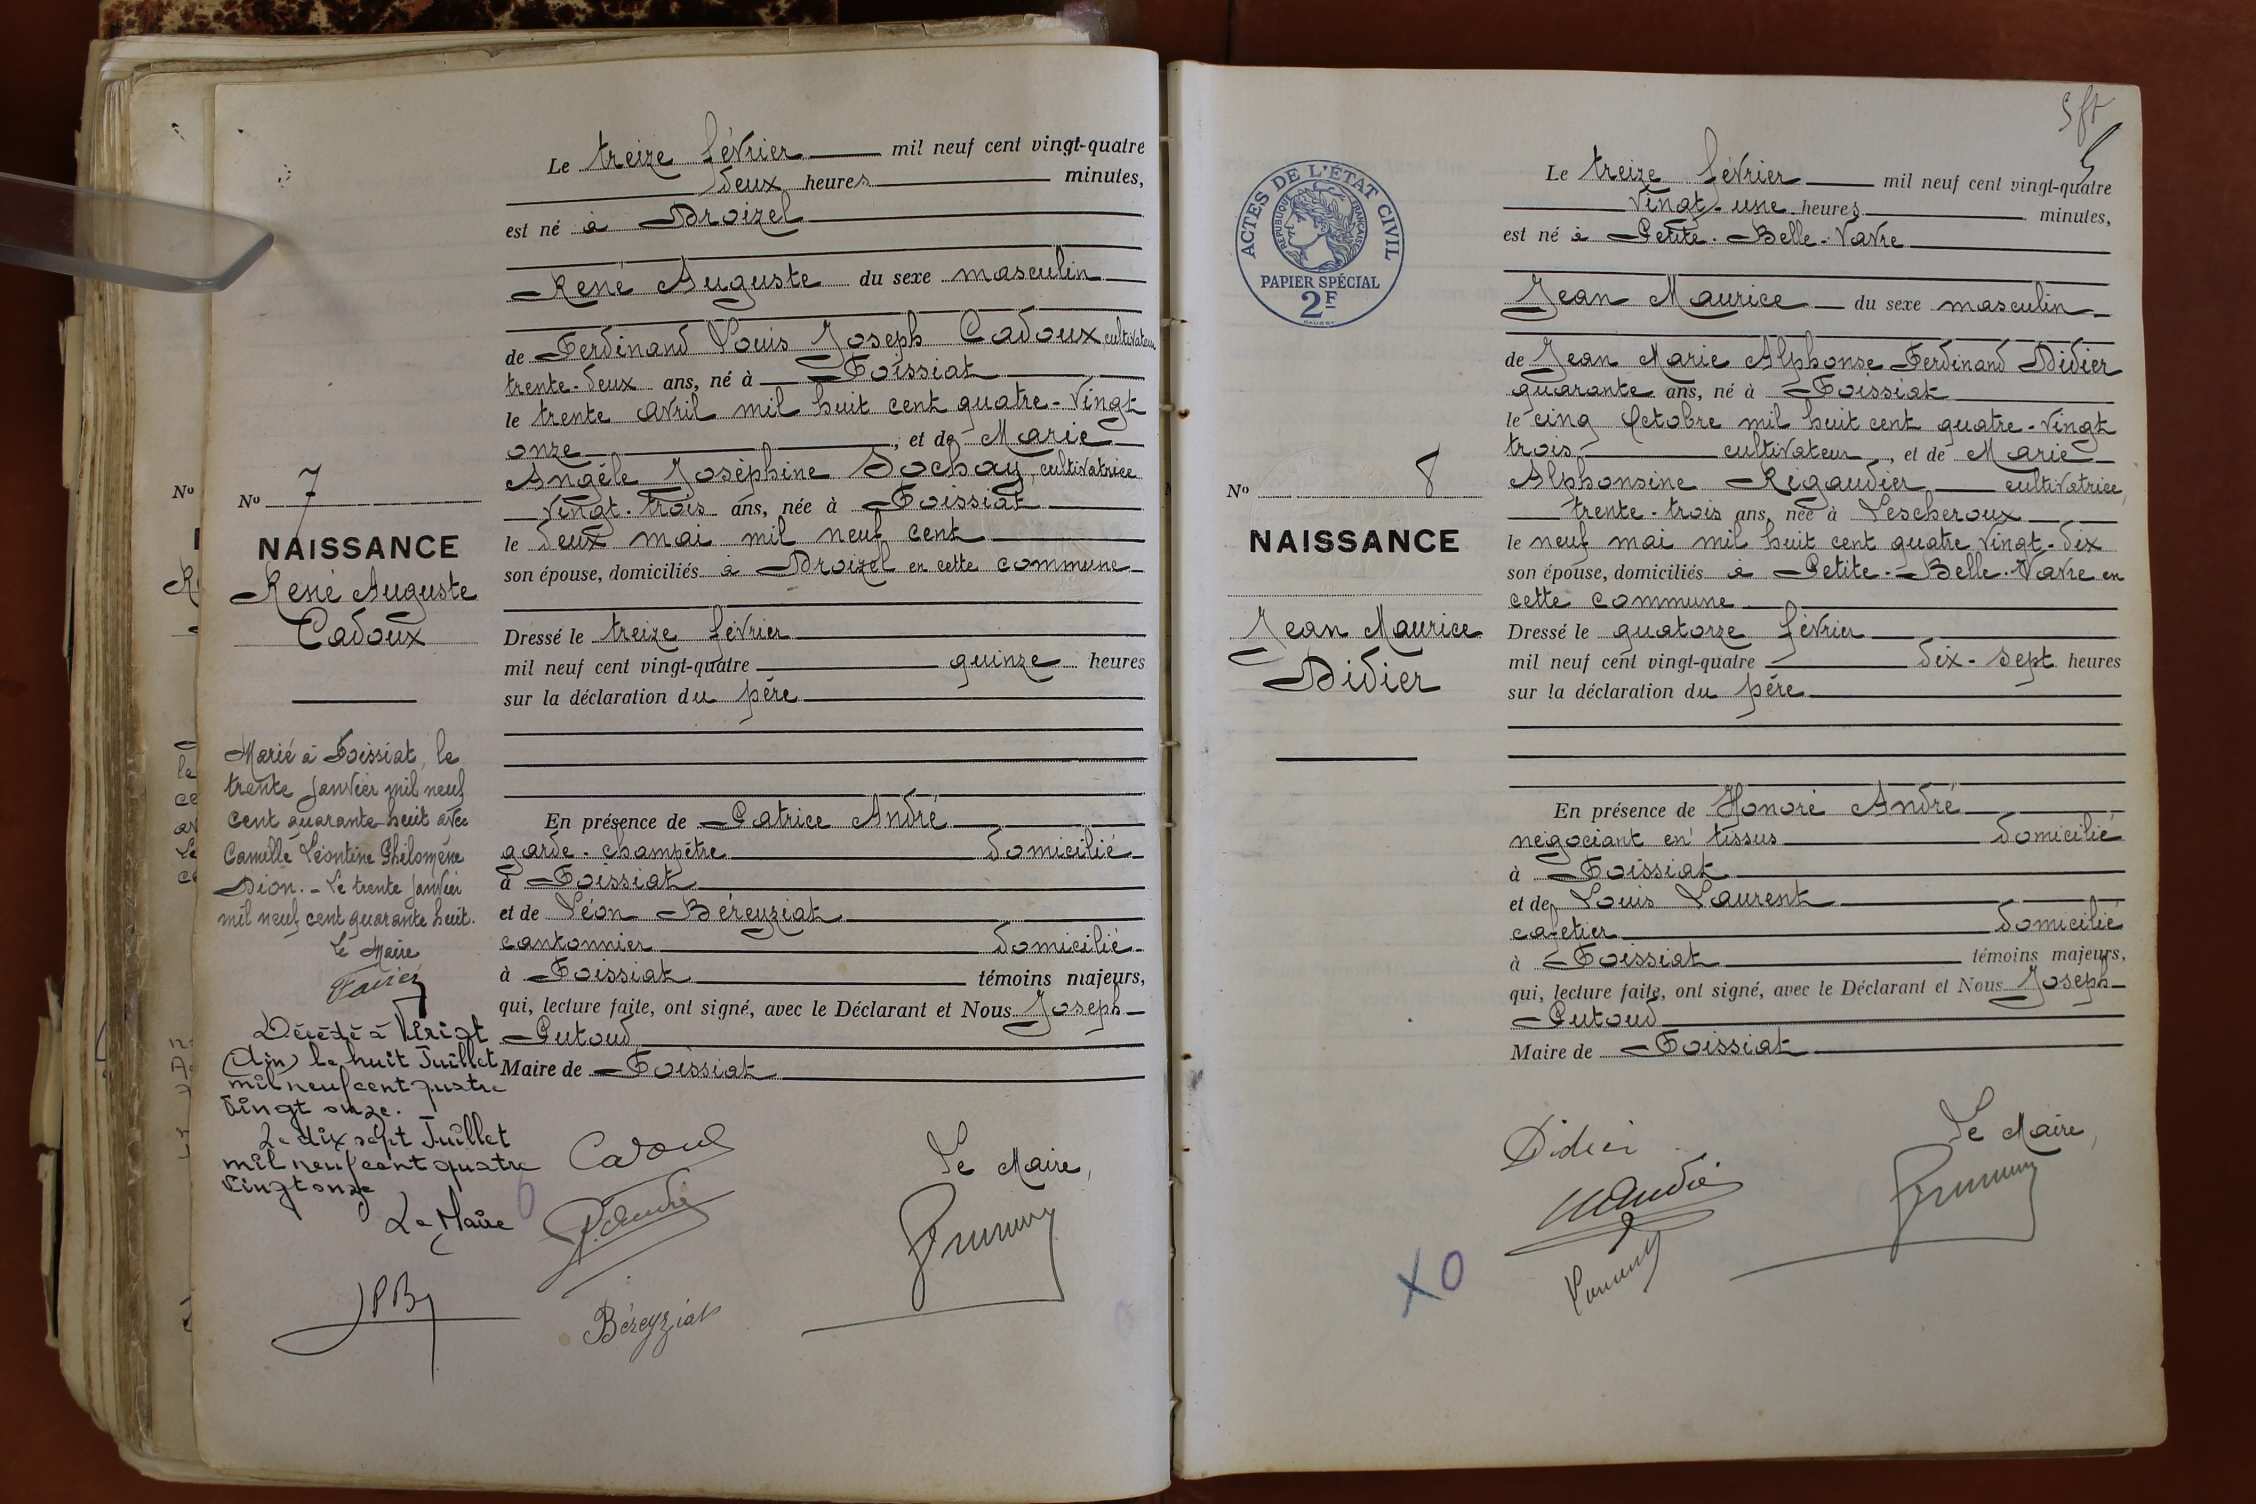 Le treize février mil neuf cent vingt-quatre
deux heures minutes,
est né à Droizel
René Auguste du sexe masculin
de Ferdinand Louis Joseph Cadoux cultivateur
trente-deux ans, né à Foissiat
le trente avril mil huit cent quatre-vingt
onze, et de Marie
Angèle Joséphine Sochay, cultivatrice
vingt-trois ans, née à Foissiat
le deux mai mil neuf cent
son épouse, domiciliés à Droizel en cette commune
Dressé le treize février
mil neuf cent vingt-quatre quinze heures
sur la déclaration du père
En présence de Patrice André
garde-champêtre domicilié
à Foissiat
et de Léon Béreyziat
cantonnier domicilié
à Foissiat témoins majeurs,
qui, lecture faite, ont signé, avec le Déclarant et Nous Joseph
Putoud
Maire de Foissiat
Cadoux
Le Maire,
P. André
Béreyziat
No
No 7
NAISSANCE
René Auguste
Cadoux
Marié à Foissiat, le
trente janvier mil neuf
cent quarante-huit avec
Camille Léontine Philomène
Dion. - Le trente janvier
mil neuf cent quarante huit.
Le Maire
Décédé à Viriat
(Ain) le huit Juillet
mil neuf cent quatre
vingt onze.
Le dix sept Juillet
mil neuf cent quatre
vingt onze
Le Maire
5 ft
ACTES DE L'ÉTAT CIVIL
RÉPUBLIQUE FRANÇAISE
PAPIER SPÉCIAL
2F
Le treize février mil neuf cent vingt-quatre
vingt-une heures minutes,
est né à Petite-Belle-Vavre
Jean Maurice du sexe masculin
de Jean Marie Alphonse Ferdinand Didier
quarante ans, né à Foissiat
le cinq Octobre mil huit cent quatre-vingt
trois cultivateur, et de Marie
Alphonsine Rigaudier cultivatrice,
trente-trois ans, née à Lescheroux
le neuf mai mil huit cent quatre vingt-dix
son épouse, domiciliés à Petite-Belle-Vavre en
cette commune
Dressé le quatorze février
mil neuf cent vingt-quatre dix-sept heures
sur la déclaration du père
En présence de Honoré André
négociant en tissus domicilié
à Foissiat
et de Louis Laurent
cafetier domicilié
à Foissiat témoins majeurs,
qui, lecture faite, ont signé, avec le Déclarant et Nous Joseph
Putoud
Maire de Foissiat
Didier
Le Maire,
XO
No 8
NAISSANCE
Jean Maurice
Didier